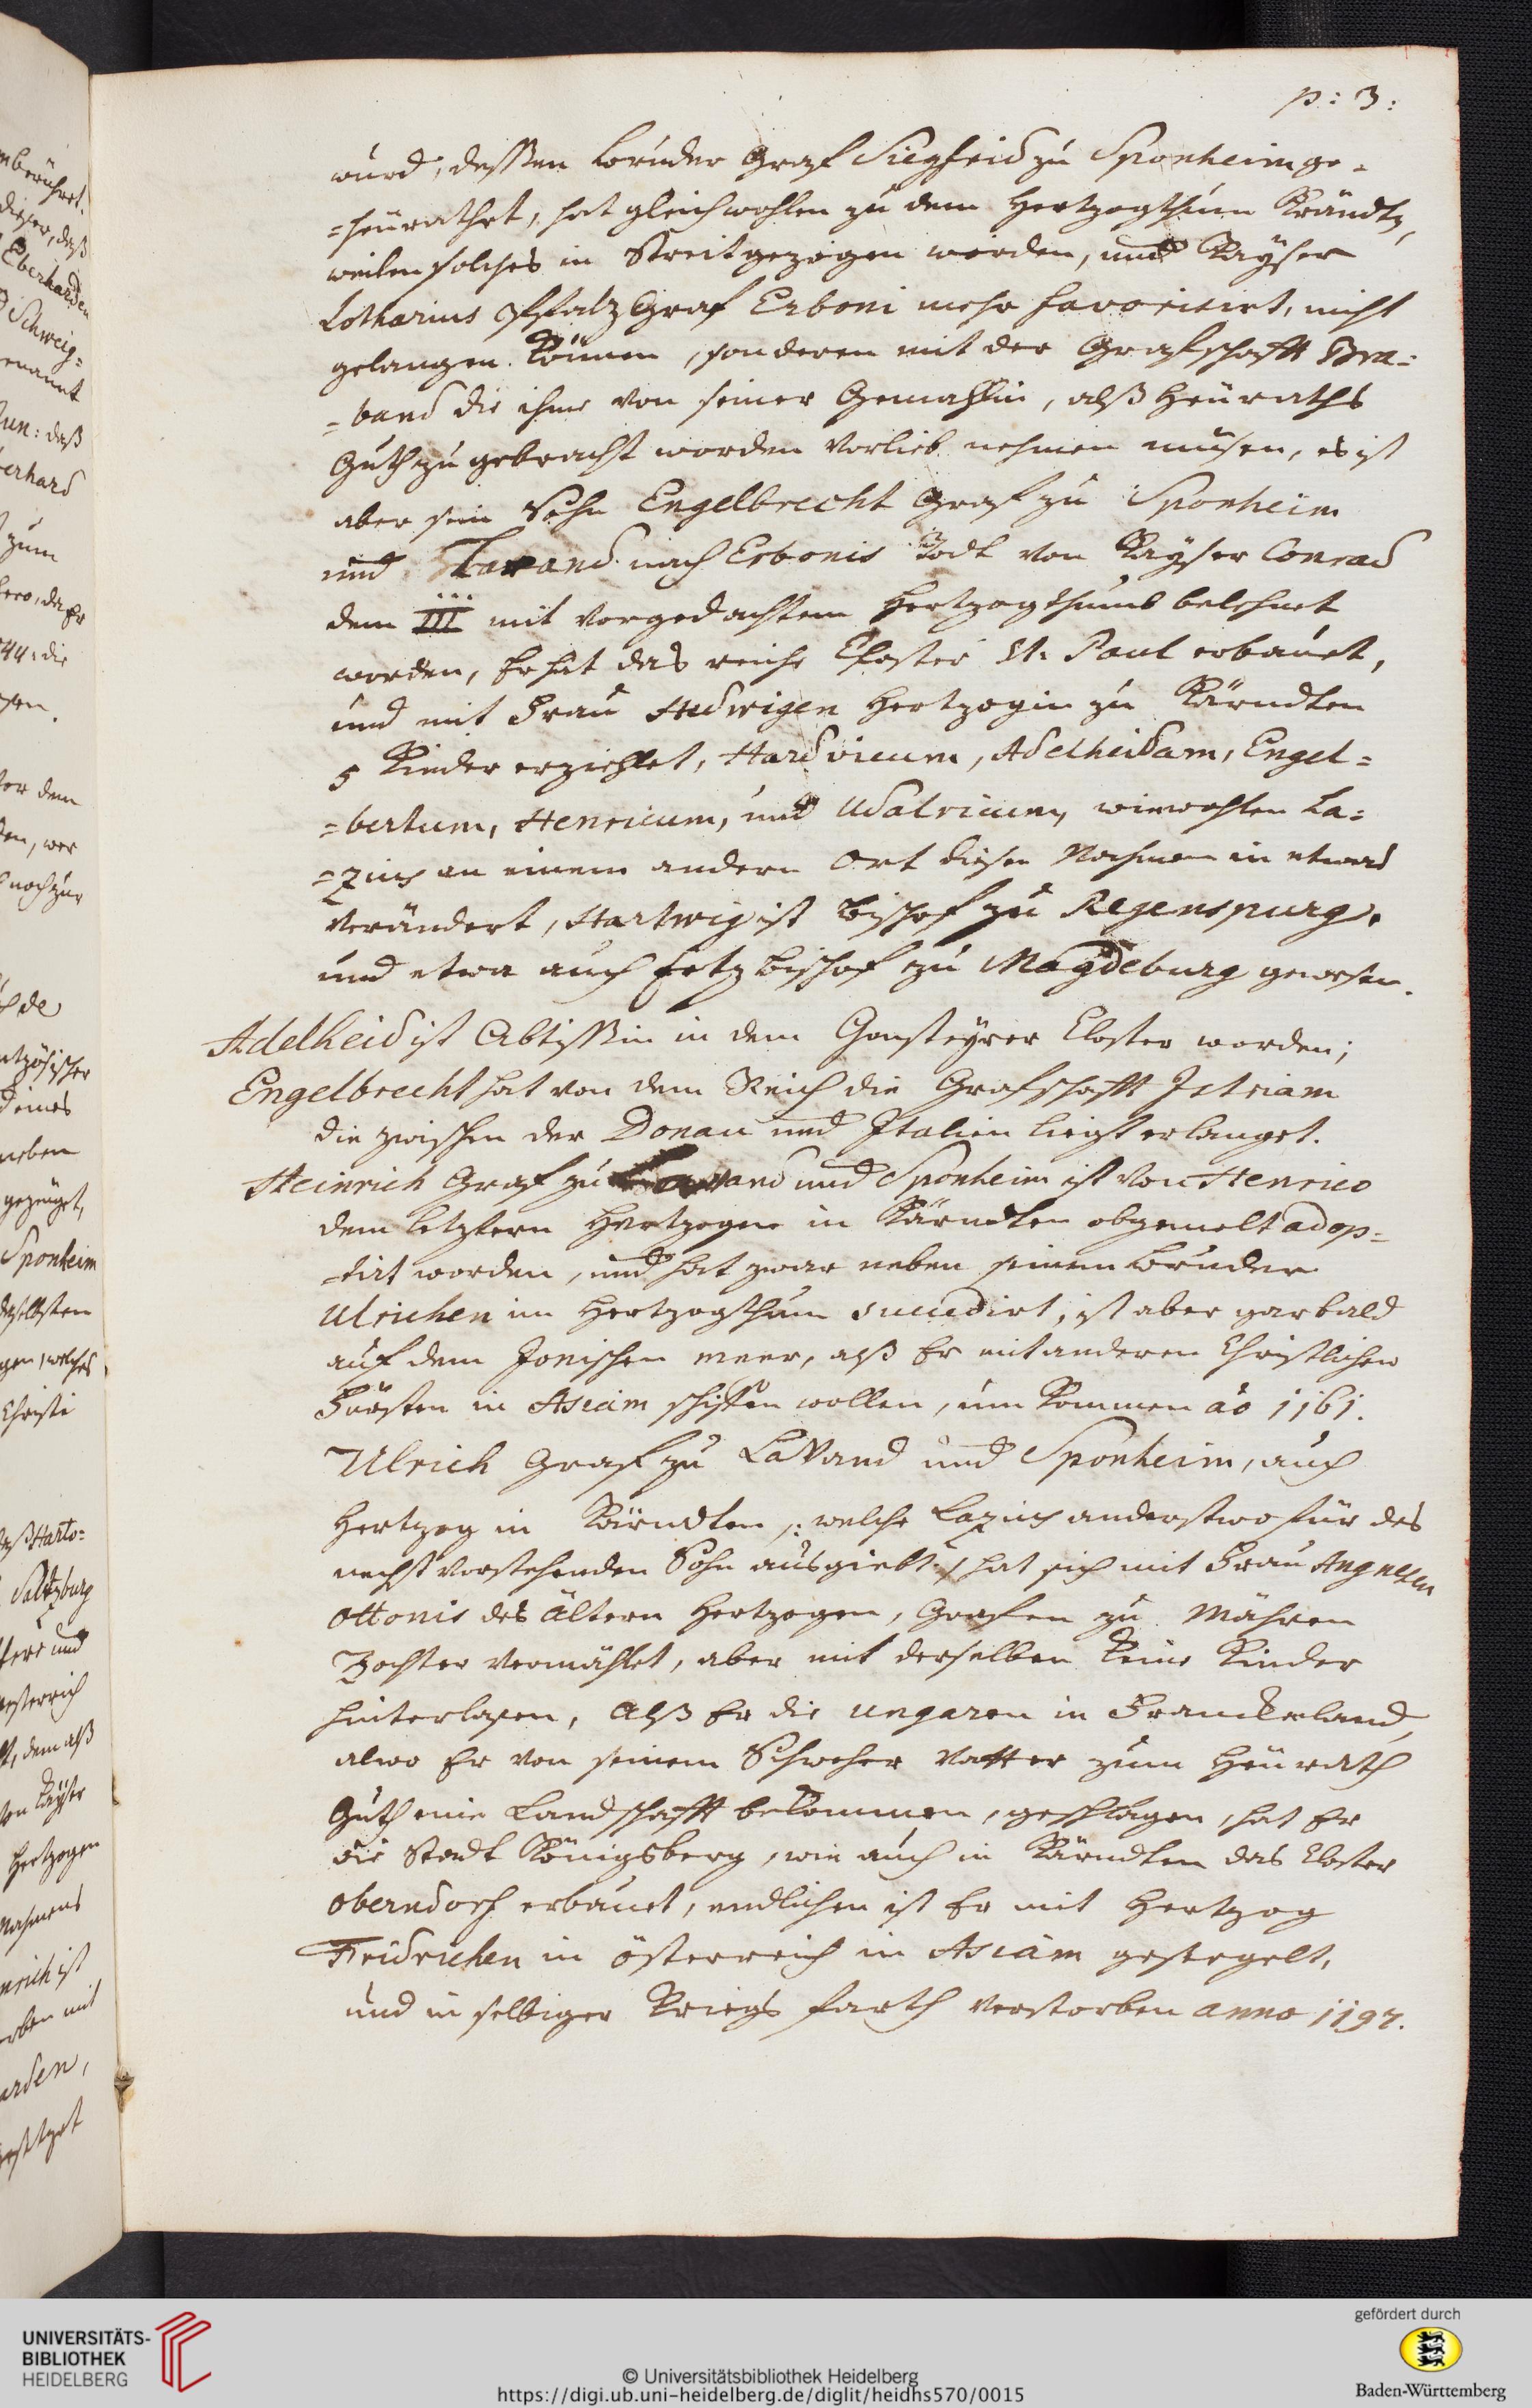 p: 3:
wurd, dessen bruder Graf Siegfrid zu Sponheim ge-
=heürathet, hat gleichwohlen zu dem Hertzogthum Krändtn,
weilen solches in Streit gezogen worden, und Kayser
Lotharius Pfaltz Graf Erboni mehr favorisirt, nicht
gelangen können, sonderen mit der Grafschafft Bra=
=band die ihme von seiner Gemahlin, alß Heüraths
Guth zu gebracht worden vorlieb nehmen müsen, es ist
aber sein Sohn Engelbrecht Graf zu Sponheim
und Lavand nach Erbonis Todt von Kayser Conrad
dem III mit vorgedachtem Hertzogthumb belehnet
worden, Er hat das reiche Closter St. Paul erbauet,
und mit Frau Hedwigen Hertzogin zu Kärndten
5 Kinder erziehlet, Hardvicum, Adelheidam, Engel=
=bertum, Henricum, und Udalricum, wiewohlen La=
=zius an einem andern Ort diese Nahmen in etwas
verändert, Hartwig ist Bischof zu Regenspurg,
und etwa auch Ertz bischof zu Magdeburg gewesen.
Adelheid ist Abtissin in dem Closter worden;
Engelbrecht hat von dem Reich die Grafschafft Istriam
die zwischen der Donau und Italien liegt erlanget.
Heinrich Graf zu Lavand und Sponheim ist von Henrico
dem letztern Hertzogen in Kärndten obgemelt adop=
=tirt worden, und hat zwar neben seinem bruder
Ulrichen im Hertzogthum succedirt, ist aber gar bald
auf dem Jonischen meer, alß Er mit anderen Christlichen
Fürsten in Asiam schiffen wollen, um kommen aõ 1161.
Ulrich Graf zu LaVand und Sponheim, auch
Hertzog in Kärndten, /: welche Lazius anderstwo für des
nechst vorstehenden Sohn ausgiebt :/ hat sich mit Frau Angnesen
Ottonis des ältern Hertzogen, Grafen zu Mähren
Tochter vermählet, aber mit derselben keine Kinder
hinterlasen, Alß Er die ungaren in Franckenland,
alwo Er von seinem Schweher Vatter zum Heürath
Guth eine Landschafft bekommen, geschlagen, hat Er
die Stadt Königsberg, wie auch in Kärndten das Closter
Oberndorf erbauet, endlichen ist Er mit Hertzog
Fridrichen in österreich in Asiam gesegelt,
und in selbiger Kriegs farth verstorben anno 1197.
UNIVERSITÄTS-
BIBLIOTHEK
HEIDELBERG
© Universitätsbibliothek Heidelberg
https://digi.ub.uni-heidelberg.de/diglit/heidhs570/0015
gefördert durch
Baden-Württemberg